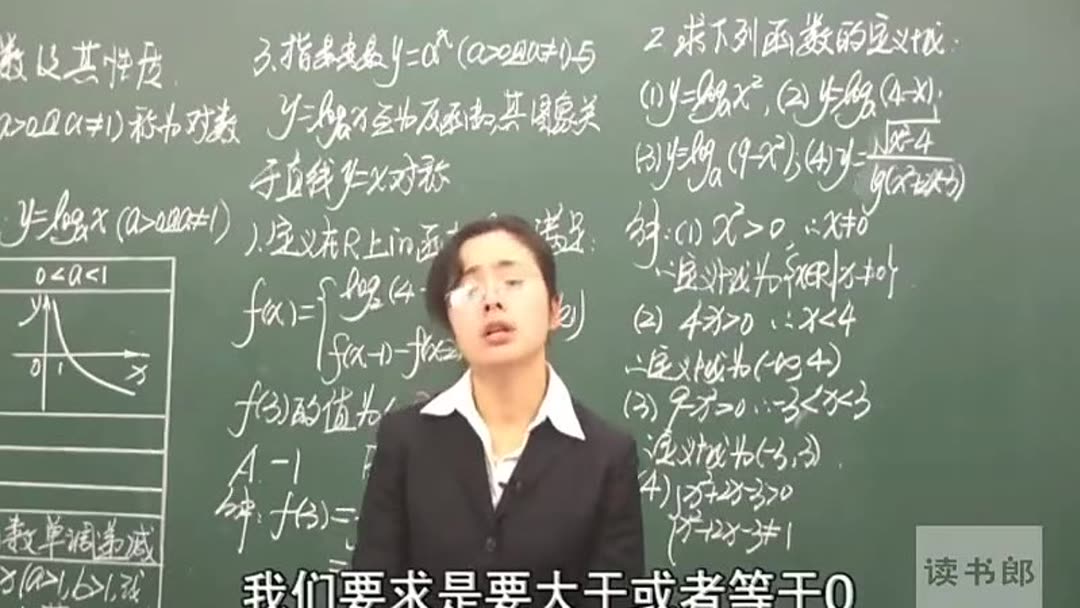 数及其性质
a>0且a≠1)称为对数
y=logₐx(a>0且a≠1)
0<a<1
y
0 1 x
数单调递减
(a>1,b>1,或
3.指数函数y=aˣ(a>0且a≠1)与
y=logₐx互为反函数,其图象关
于直线y=x对称
1.定义在R上的函 满足:
f(x)={log₂(4-
f(x-1)-f(x-2
f(3)的值为(
A.-1
解:f(3)=
=
2.求下列函数的定义域:
(1)y=logₐx²,(2)y=logₐ(4-x);
(3)y=logₐ(9-x²);(4)y=√(x²-4)/lg(x²+2x-3)
解:(1)x²>0,∴x≠0
∴定义域为{x∈R|x≠0}
(2) 4-x>0 ∴x<4
∴定义域为(-∞,4)
(3) 9-x²>0 ∴-3<x<3
定义域为(-3,3)
(4){x²+2x-3>0
x²+2x-3≠1
读书郎
我们要求是要大于或者等于0